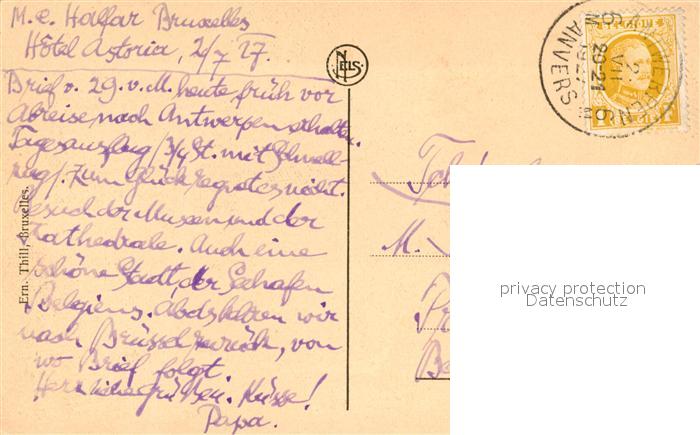 M. e. Halfar Bruxelles
Hôtel Astoria, 2/7 27.
Brief v. 29. v. M. heute früh vor
Abreise nach Antwerpen erhalten.
Tagesausflug /3/4 St. mit Schnell-
zug/. Zum Glück regnetes nicht.
Besuch der Museen und der
Kathedrale. Auch eine
schöne Stadt, der Seehafen
Belgiens. Abds fahren wir
nach Brüssel zurück, von
wo Brief folgt.
Herzliche Grüße. Küsse!
Papa.
Ern. Thill, Bruxelles.
NELS
ANTWERPEN 6
2 VII
20-21
1927
ANVERS
M.
privacy protection
Datenschutz